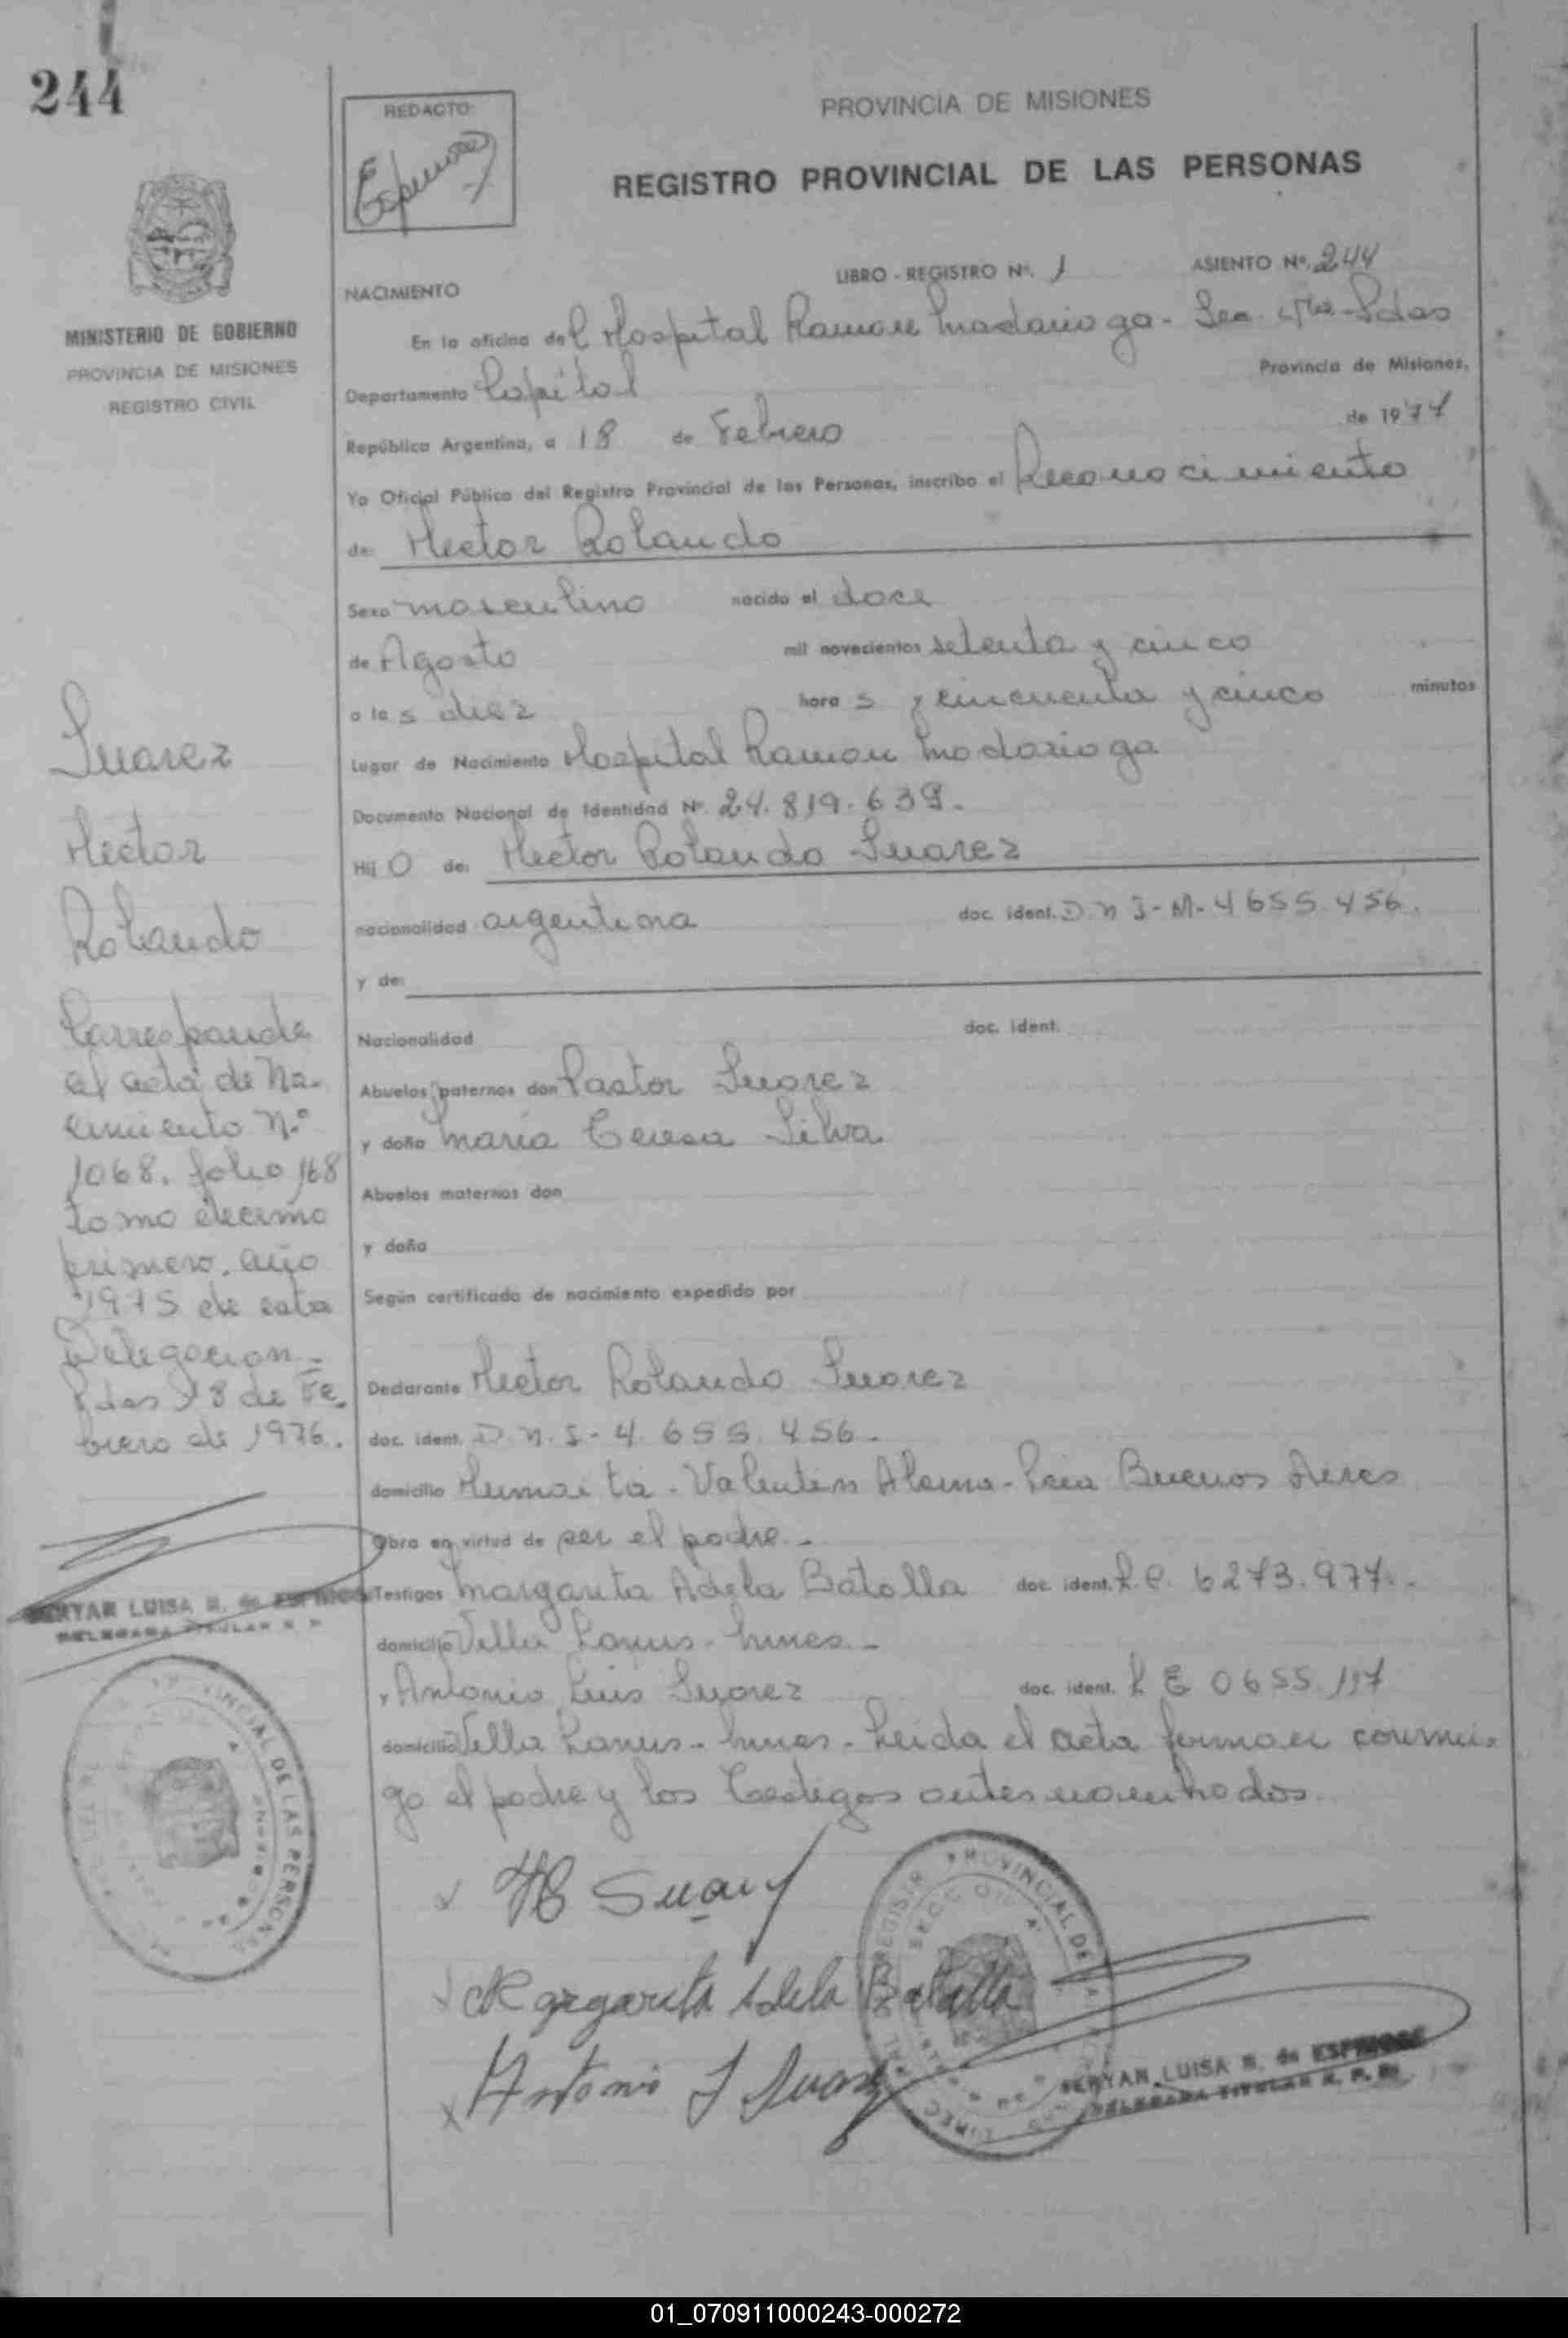 244
REDACTO:
PROVINCIA DE MISIONES
REGISTRO PROVINCIAL DE LAS PERSONAS
MINISTERIO DE GOBIERNO
PROVINCIA DE MISIONES
REGISTRO CIVIL
NACIMIENTO
LIBRO - REGISTRO Nº. 1
ASIENTO Nº. 244
En la oficina del Hospital Ramon Madariaga - Sec. 4ta - Pdas
Departamento Capital
Provincia de Misiones,
República Argentina, a 18 de Febrero de 1977
Yo Oficial Público del Registro Provincial de las Personas, inscribo el Reconocimiento
de: Hector Rolando
Sexo masculino nacido el doce
de Agosto mil novecientos setenta y cinco
a las diez horas y cincuenta y cinco minutos
Lugar de Nacimiento Hospital Ramon Madariaga
Documento Nacional de Identidad Nº. 24.819.639.
Hijo de: Hector Rolando Suarez
nacionalidad argentina doc. ident. D.N.I - M. 4655.456.
y de:
Nacionalidad doc. ident.
Abuelos paternos don Pastor Suarez
y doña Maria Teresa Silva
Abuelos maternos don
y doña
Según certificado de nacimiento expedido por
Declarante Hector Rolando Suarez
doc. ident. D.N.I - 4.655.456.
domicilio Humaita - Valentin Alsina - Buenos Aires
Obra en virtud de ser el padre.-
Testigos Margarita Adela Batolla doc. ident. L.C. 6273.977.-
domicilio Villa Lanus - 
y Antonio Luis Suarez doc. ident. L E 0655.197
domicilio Villa Lanus - Leida el acta firman conmi-
go el padre y los testigos antes nombrados.
Suarez
Hector
Rolando
Corresponde
al acta de Na-
cimiento Nº
1068. folio 168
tomo decimo
primero. año
1975 de esta
Delegacion -
Pdas 18 de Fe.
brero de 1976.
LUISA de ESPINOSA
DELEGADA TITULAR R. P.
PROVINCIAL DE LAS PERSONAS
H Suarez
Margarita Adela Batalla
Antonio L Suarez
PROVINCIAL DE
LUISA N. de ESPINOSA
DELEGADA TITULAR R. P.
01_070911000243-000272